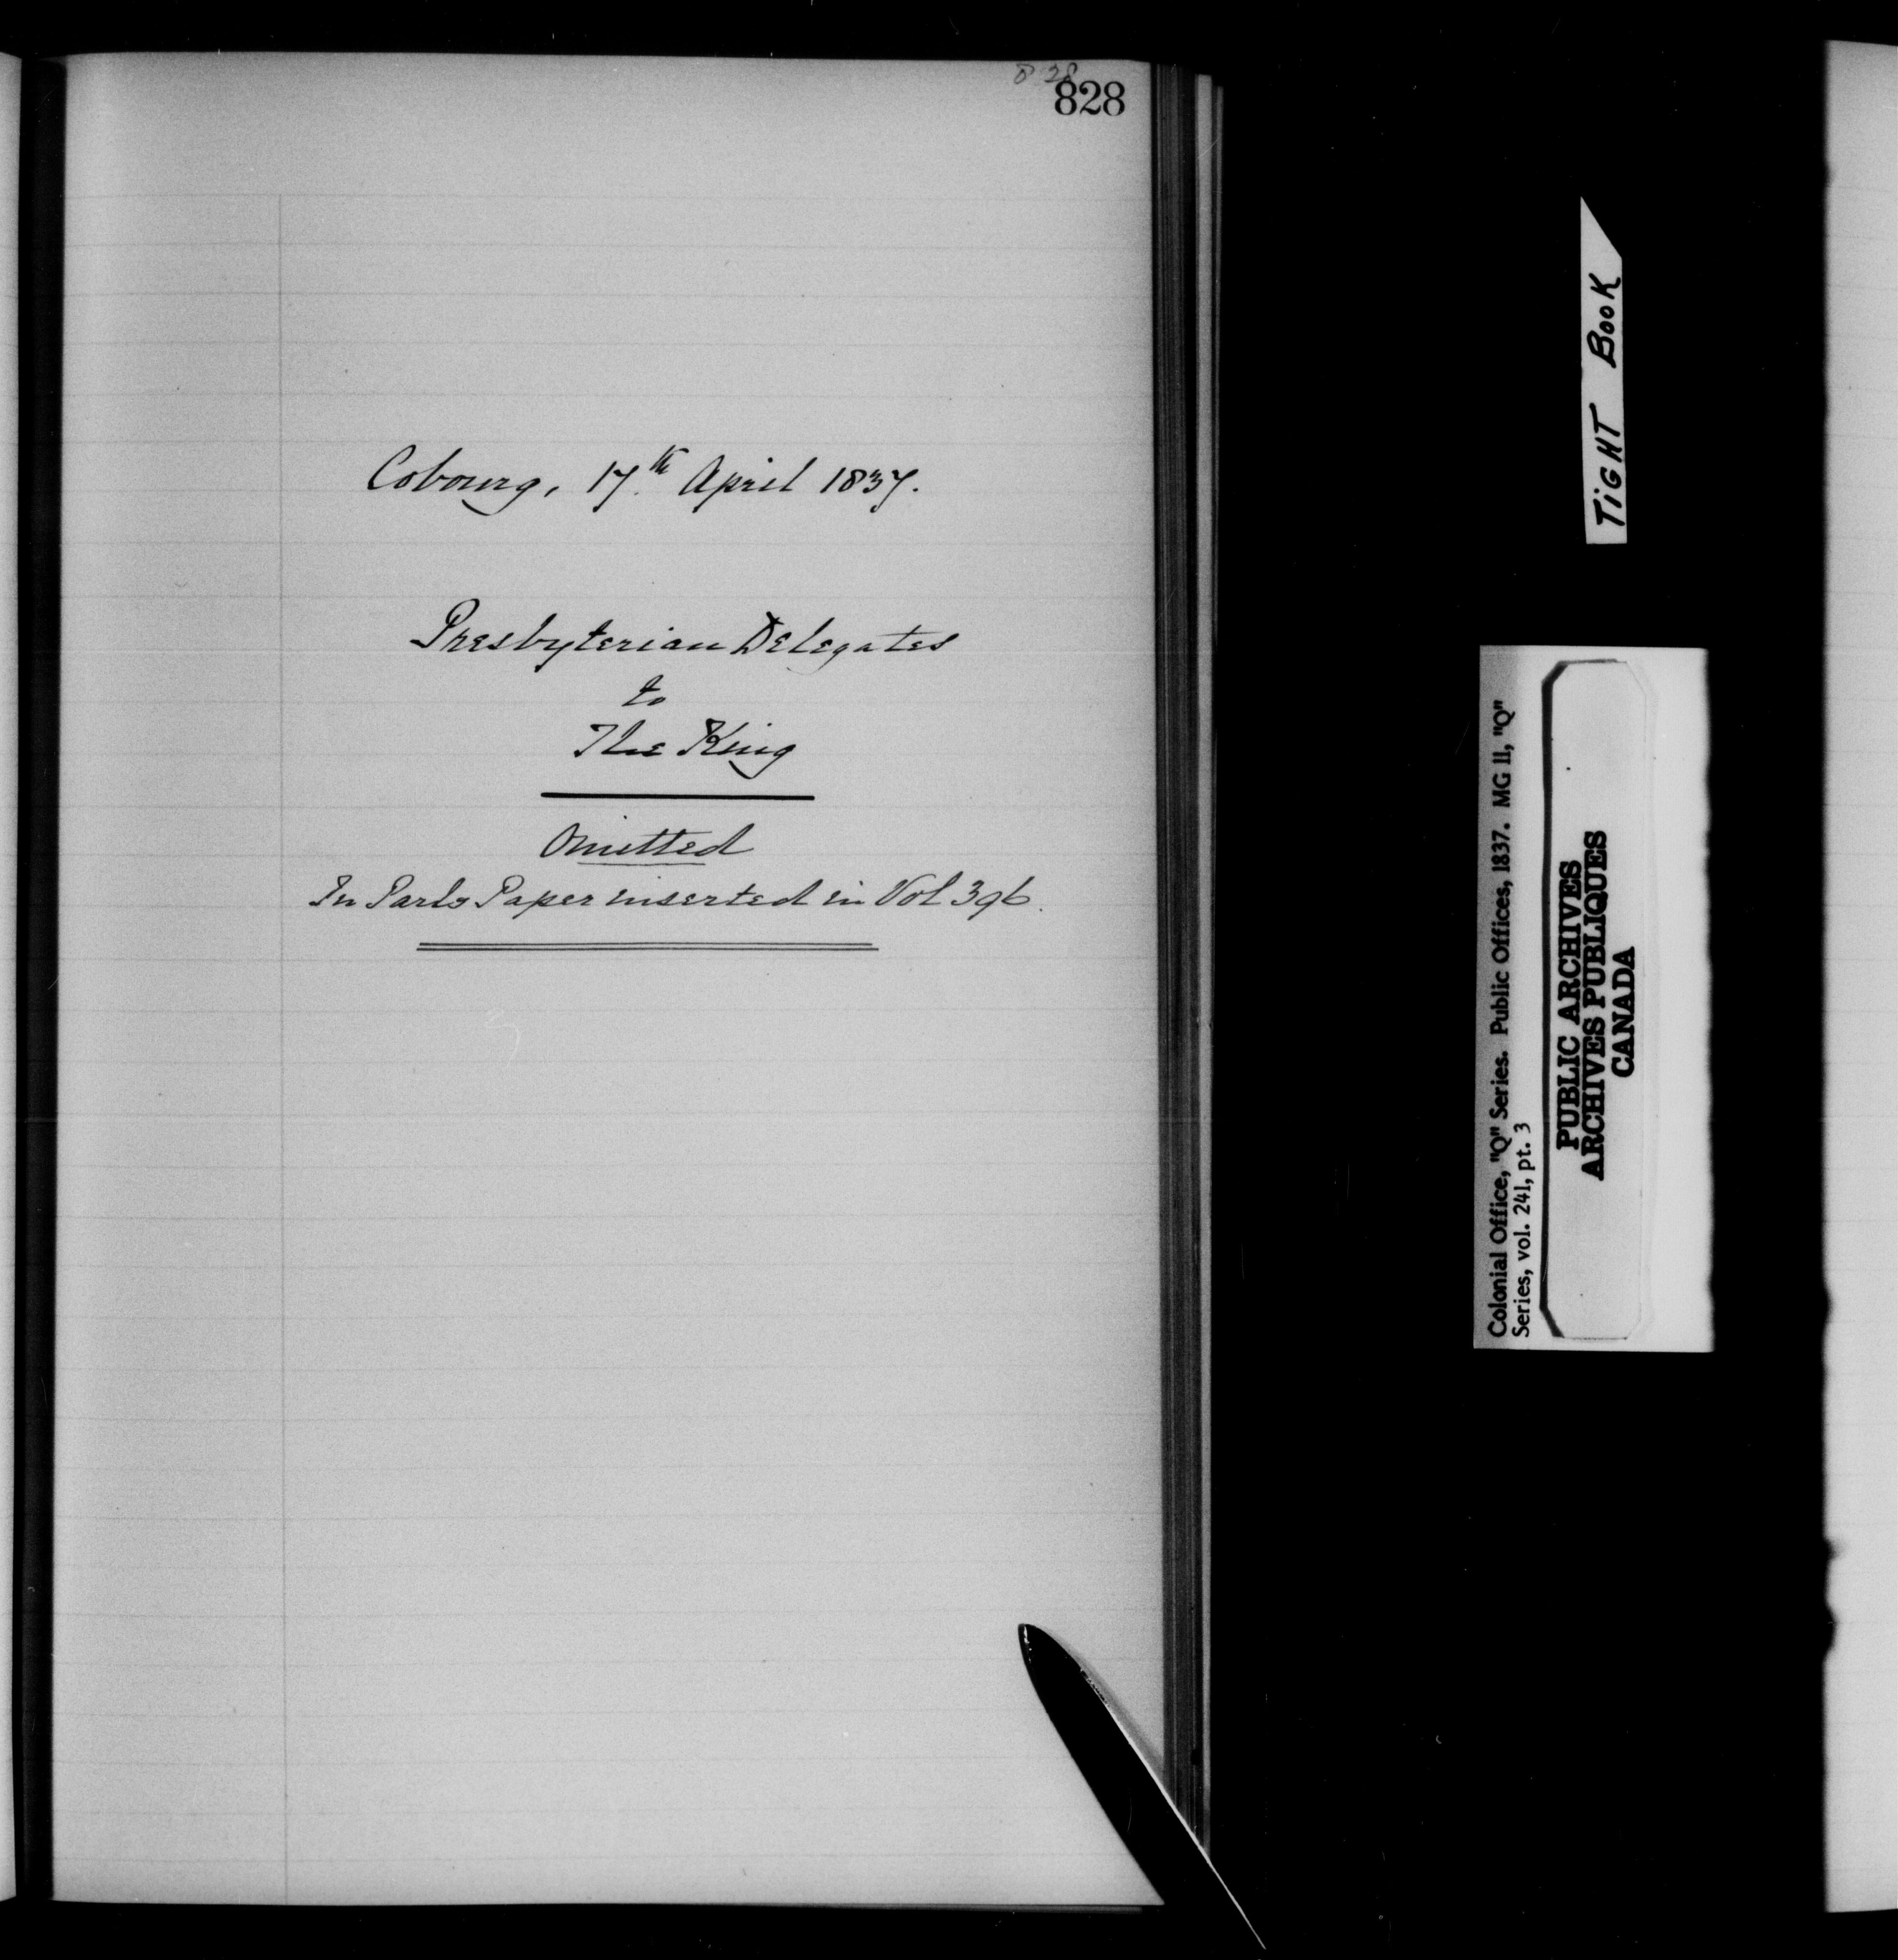 8 28
828
Cobourg, 17th April 1837.
Presbyterian Delegates
to
The King
Omitted
In Parlo Paper inserted in Vol 396.
TIGHT BOOK
Colonial Office, "Q" Series. Public Offices, 1837. MG 11, "Q"
Series, vol. 241, pt. 3
PUBLIC ARCHIVES
ARCHIVES PUBLIQUES
CANADA